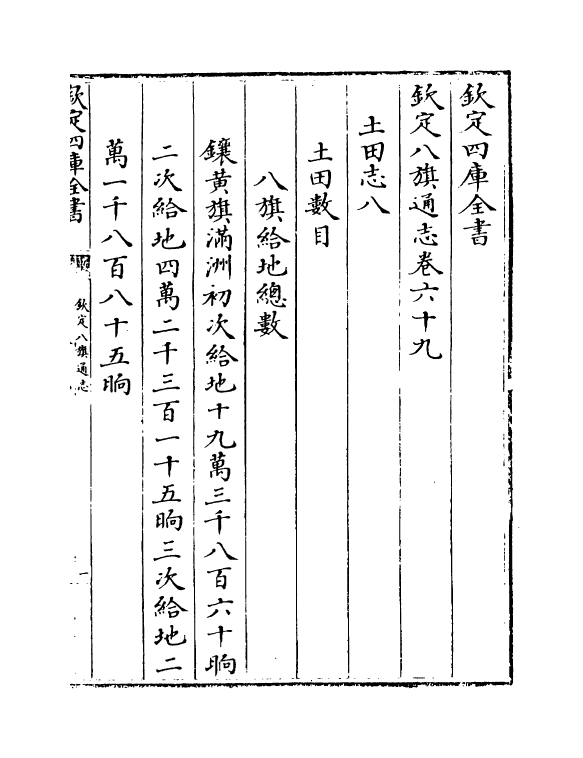 欽定四庫全書
欽定八旗通志卷六十九
土田志八
土田數目
八旗給地總數
鑲黃旗滿洲初次給地十九萬三千八百六十晌
二次給地四萬二千三百一十五晌三次給地二
萬一千八百八十五晌
欽定四庫全書
欽定八旗通志
一